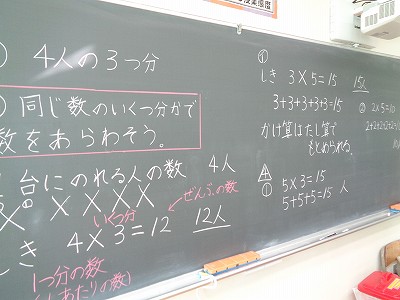 4人の3つ分
同じ数のいくつ分かで
数をあらわそう。
台にのれる人の数 4人
いくつ分
ぜんぶの数
しき 4×3=12 12人
1つ分の数
あたりの数)
①
しき 3×5=15 15人
3+3+3+3+3=15
かけ算はたし算で
もとめられる。
② 2×5=10
2+2+2+2+2=
① 5×3=15
5+5+5=15 人